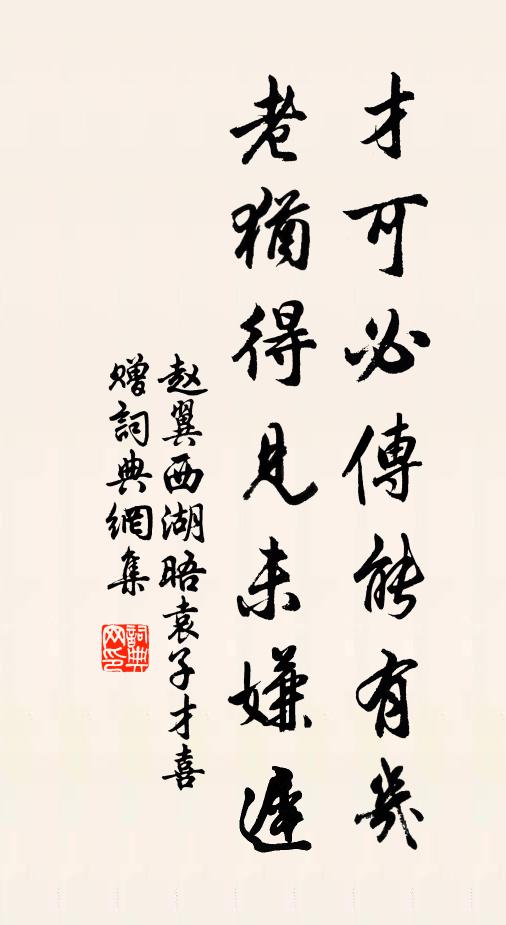 才可必傳能有幾
老猶得見未嫌遲
赵翼西湖晤袁子才喜
赠詞典網集
詞典
网印